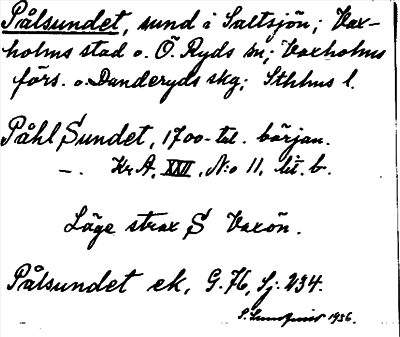 Pålsundet, sund i Saltsjön; Vax-
holms stad o. Ö. Ryds sn; Vaxholms
förs. o. Danderyds skg; Sthlms l.
Påhl Sundet, 1700-tal. början.
–. Kr A, XXII, N:o 11, lit. b.
Läge strax S Vaxön.
Pålsundet ek, G. 76, Sj: 234.
S. Sundqvist 1936.